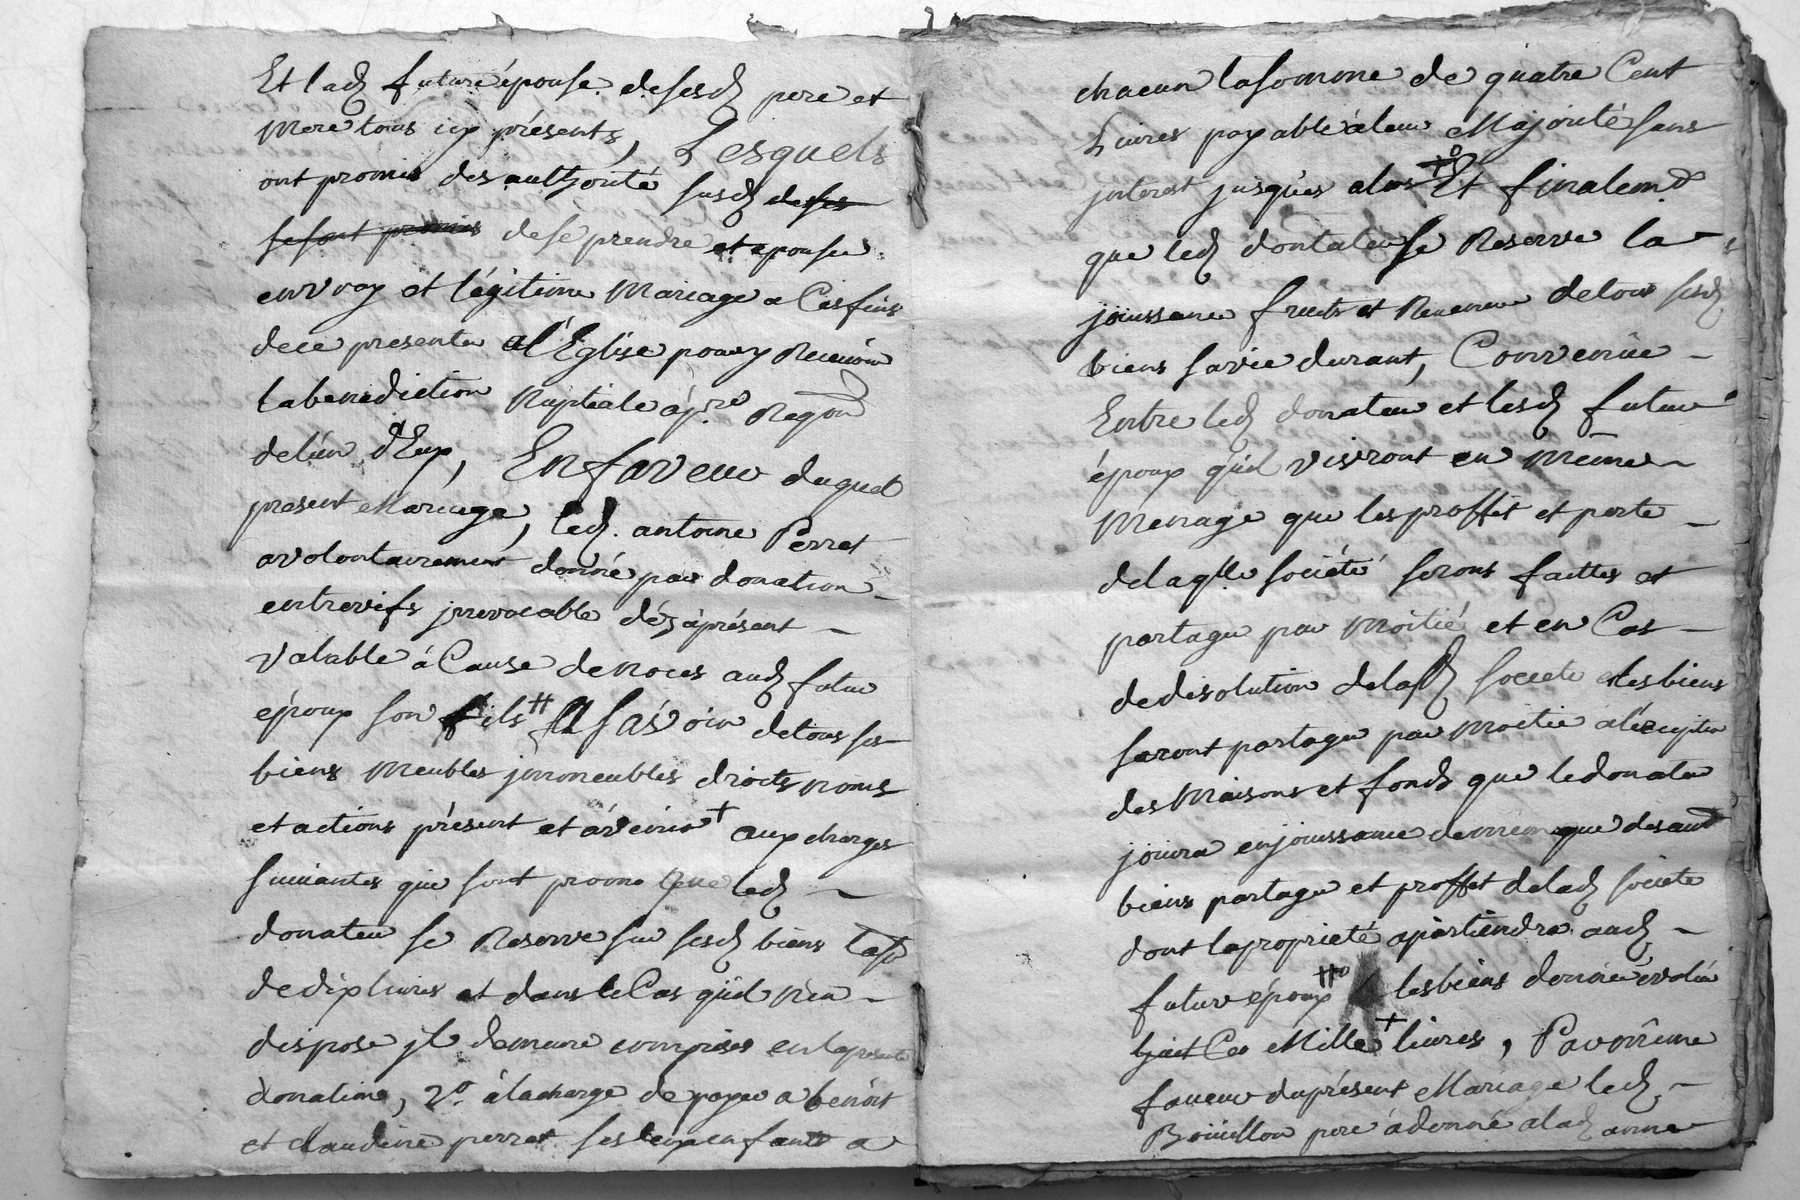 Et lad future épouse de sesd pere et
Mere tous icy présents, Lesquels
ont promis des authorité susd de ses
se sont promis de se prendre et epouser
en vray et légitime Mariage a Ces fins
de ce presenter a l'Eglise pour y Recevoir
la benediction Nuptiale
de l'un d'Eux, En faveur duquel
présent Mariage, led. antoine Perret
a volontairement donné par donation
entrevifs jrrevocable dés àprésent
Valable à Cause de noces aud futur
époux son fils # A sávoir de tous ses
biens Meubles jmmeubles droits noms
et actions présent et avenir + aux charges
suivantes que led
donateur se Reserve sur sesd biens
de dix livres et dans le Cas qu'il n'en
dispose jl demeure comprises en la presente
donation, 2º. à la charge de payer a benoit
et Claudine perret ses deux enfants a
chacun la somme de quatre Cent
Livres payable a leur Majorité sans
jnterest jusques alors Et finalemt
que led donateur se Reserve la
jouissance fruits et Revenu de tous sesd
biens sa vie durant, Convenue
Entre led donateur et lesd futur
époux qu'il vivront en même
Menage que les proffit et perte
de laqlle société serons faittes et
partager par Moitié et en Cas
de disolution de lad societe les biens
seront partager par Moitié a l'éxception
des Maisons et fonds que le donateur
jouira en jouissance de meme que desaud
biens partager et proffit de lad societe
dont la proprieté apartiendra aud
futur époux les biens donnée évalué
Ces Mille + livres,
faveur du présent Mariage led
Boüillon pere à donné a lad anne